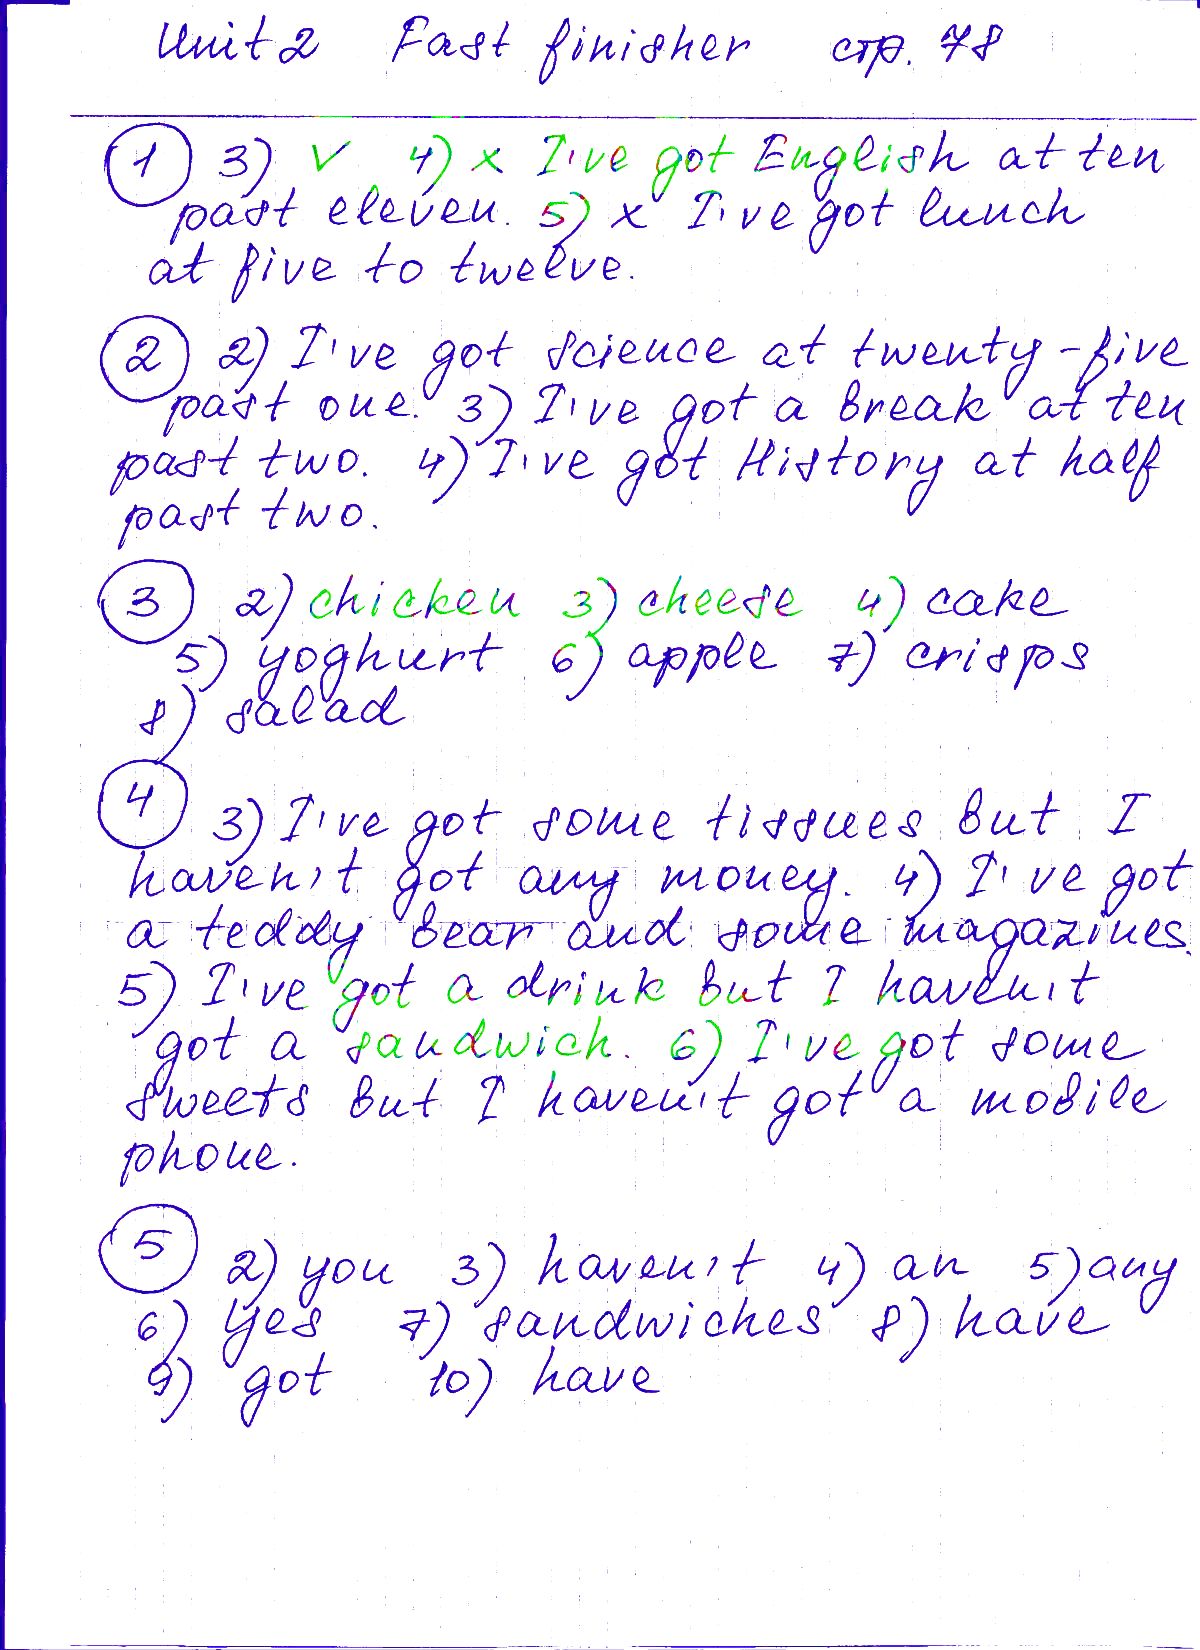 Unit 2 Fast finisher стр. 78
1 3) ✓ 4) x I've got English at ten
past eleven. 5) x I've got lunch
at five to twelve.
2 2) I've got science at twenty-five
past one. 3) I've got a break at ten
past two. 4) I've got History at half
past two.
3 2) chicken 3) cheese 4) cake
5) yoghurt 6) apple 7) crisps
8) salad
4 3) I've got some tissues but I
haven't got any money. 4) I've got
a teddy bear and some magazines.
5) I've got a drink but I haven't
got a sandwich. 6) I've got some
sweets but I haven't got a mobile
phone.
5 2) you 3) haven't 4) an 5) any
6) Yes 7) sandwiches 8) have
9) got 10) have